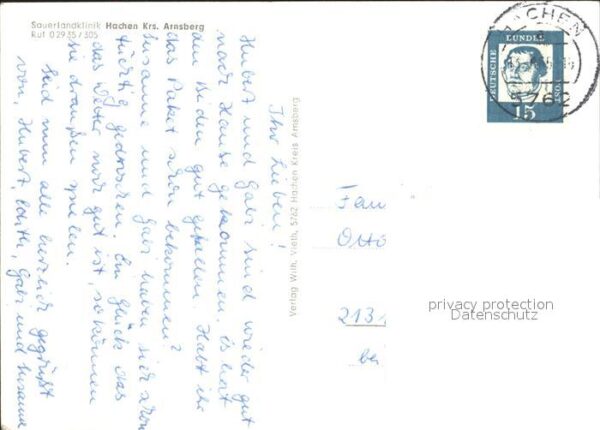 Sauerlandklinik Hachen Krs. Arnsberg
Ruf 0 29 35 / 305
Ihr Lieben!
Hubert und Gabi sind wieder gut
nach Hause gekommen, es hat
den Beiden gut gefallen. Habt ihr
das Paket schon bekommen?
Susanne und Gabi haben sich schon
tüchtig gedroschen. Ein Glück das
das Wetter noch gut ist, so können
sie draußen spielen.
Seid nun alle herzlich gegrüßt
von, Hubert, Edith, Gabi und Susanne
Verlag Wilh. Vieth, 5762 Hachen Kreis Arnsberg
HACHEN
5762
DEUTSCHE BUNDESPOST
15
Frau
Otto
213
bei
privacy protection
Datenschutz